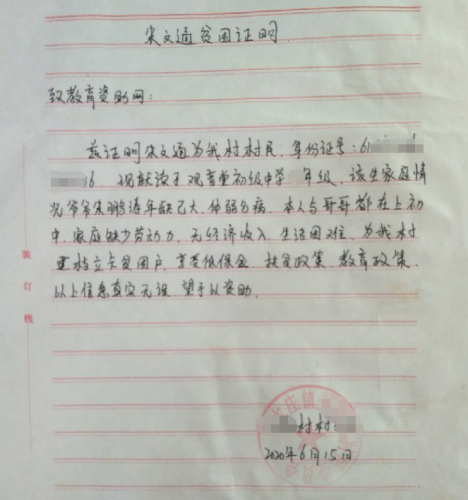 宋文通贫困证明
致教育资助网:
兹证明宋文通为我村村民,身份证号:61
16.现就读于观音堂初级中学 年级,该生家庭情
况爷爷朱鹏涛年龄已大,体弱多病.本人与哥哥都在上初
中,家庭缺少劳动力,无经济收入,生活困难,为我村
建档立卡贫困户,享受低保金,扶贫政策,教育政策.
以上信息真实无误,望予以资助.
装订线
庄镇
村村
2020年6月15日